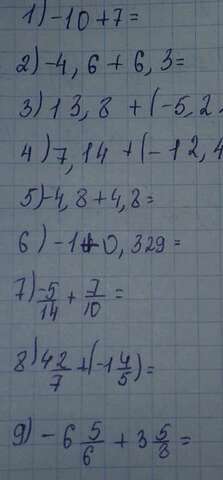 1) -10 + 7 =
2) -4,6 + 6,3 =
3) 13,8 + (-5,2
4) 7,14 + (-12,4
5) -4,8 + 4,8 =
6) -1 + 0,329 =
7) -5/14 + 7/10 =
8) 4 2/7 + (-1 4/5) =
9) -6 5/6 + 3 5/8 =